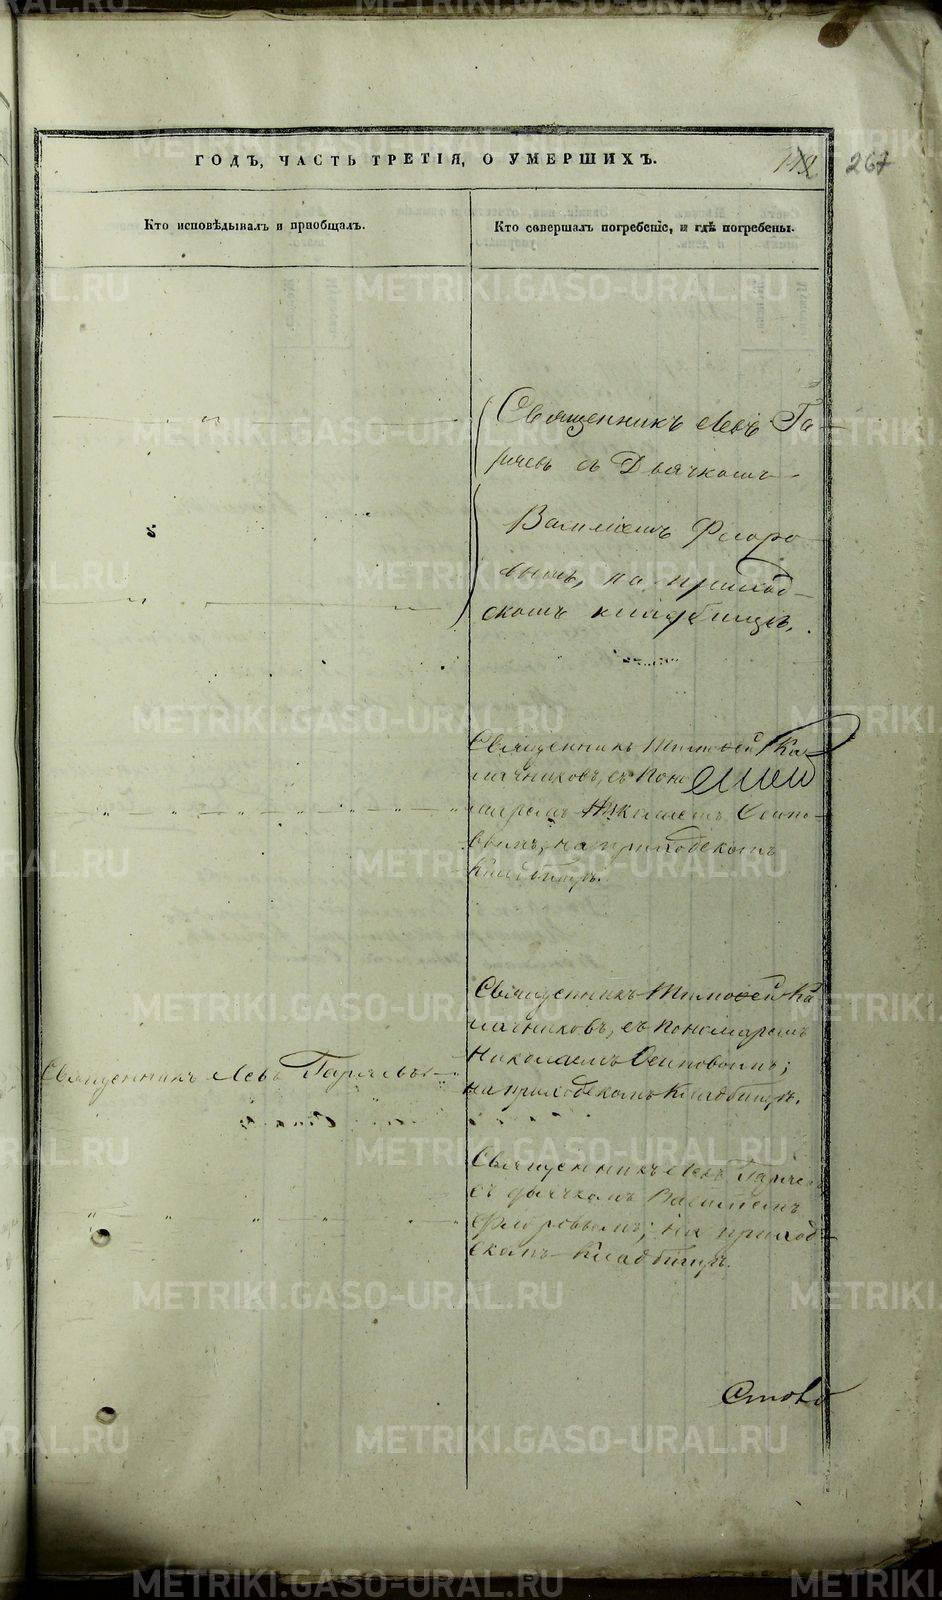 ГОДЪ, ЧАСТЬ ТРЕТІЯ, О УМЕРШИХЪ.
267
Кто исповѣдывалъ и пріобщалъ.
Кто совершалъ погребеніе, и гдѣ погребены.
Священникъ Левъ Га-
ряевъ съ Дьячкомъ
Василіемъ Флоро-
вымъ, на приход-
скомъ кладбищѣ.
Священникъ Тимоѳей Ка-
лачниковъ, съ Поно
маремъ Николаемъ Осипо-
вымъ, на приходскомъ
Кладбищѣ.
Священникъ Тимоѳей Ка
лачниковъ, съ Пономаремъ
Николаемъ Осиповымъ;
на приходскомъ Кладбищѣ.
Священникъ Левъ Гаряевъ
Священникъ Левъ Гаряе
съ дьячкомъ Василіемъ
Флоровымъ; на приход-
скомъ Кладбищѣ.
METRIKI.GASO-URAL.RU